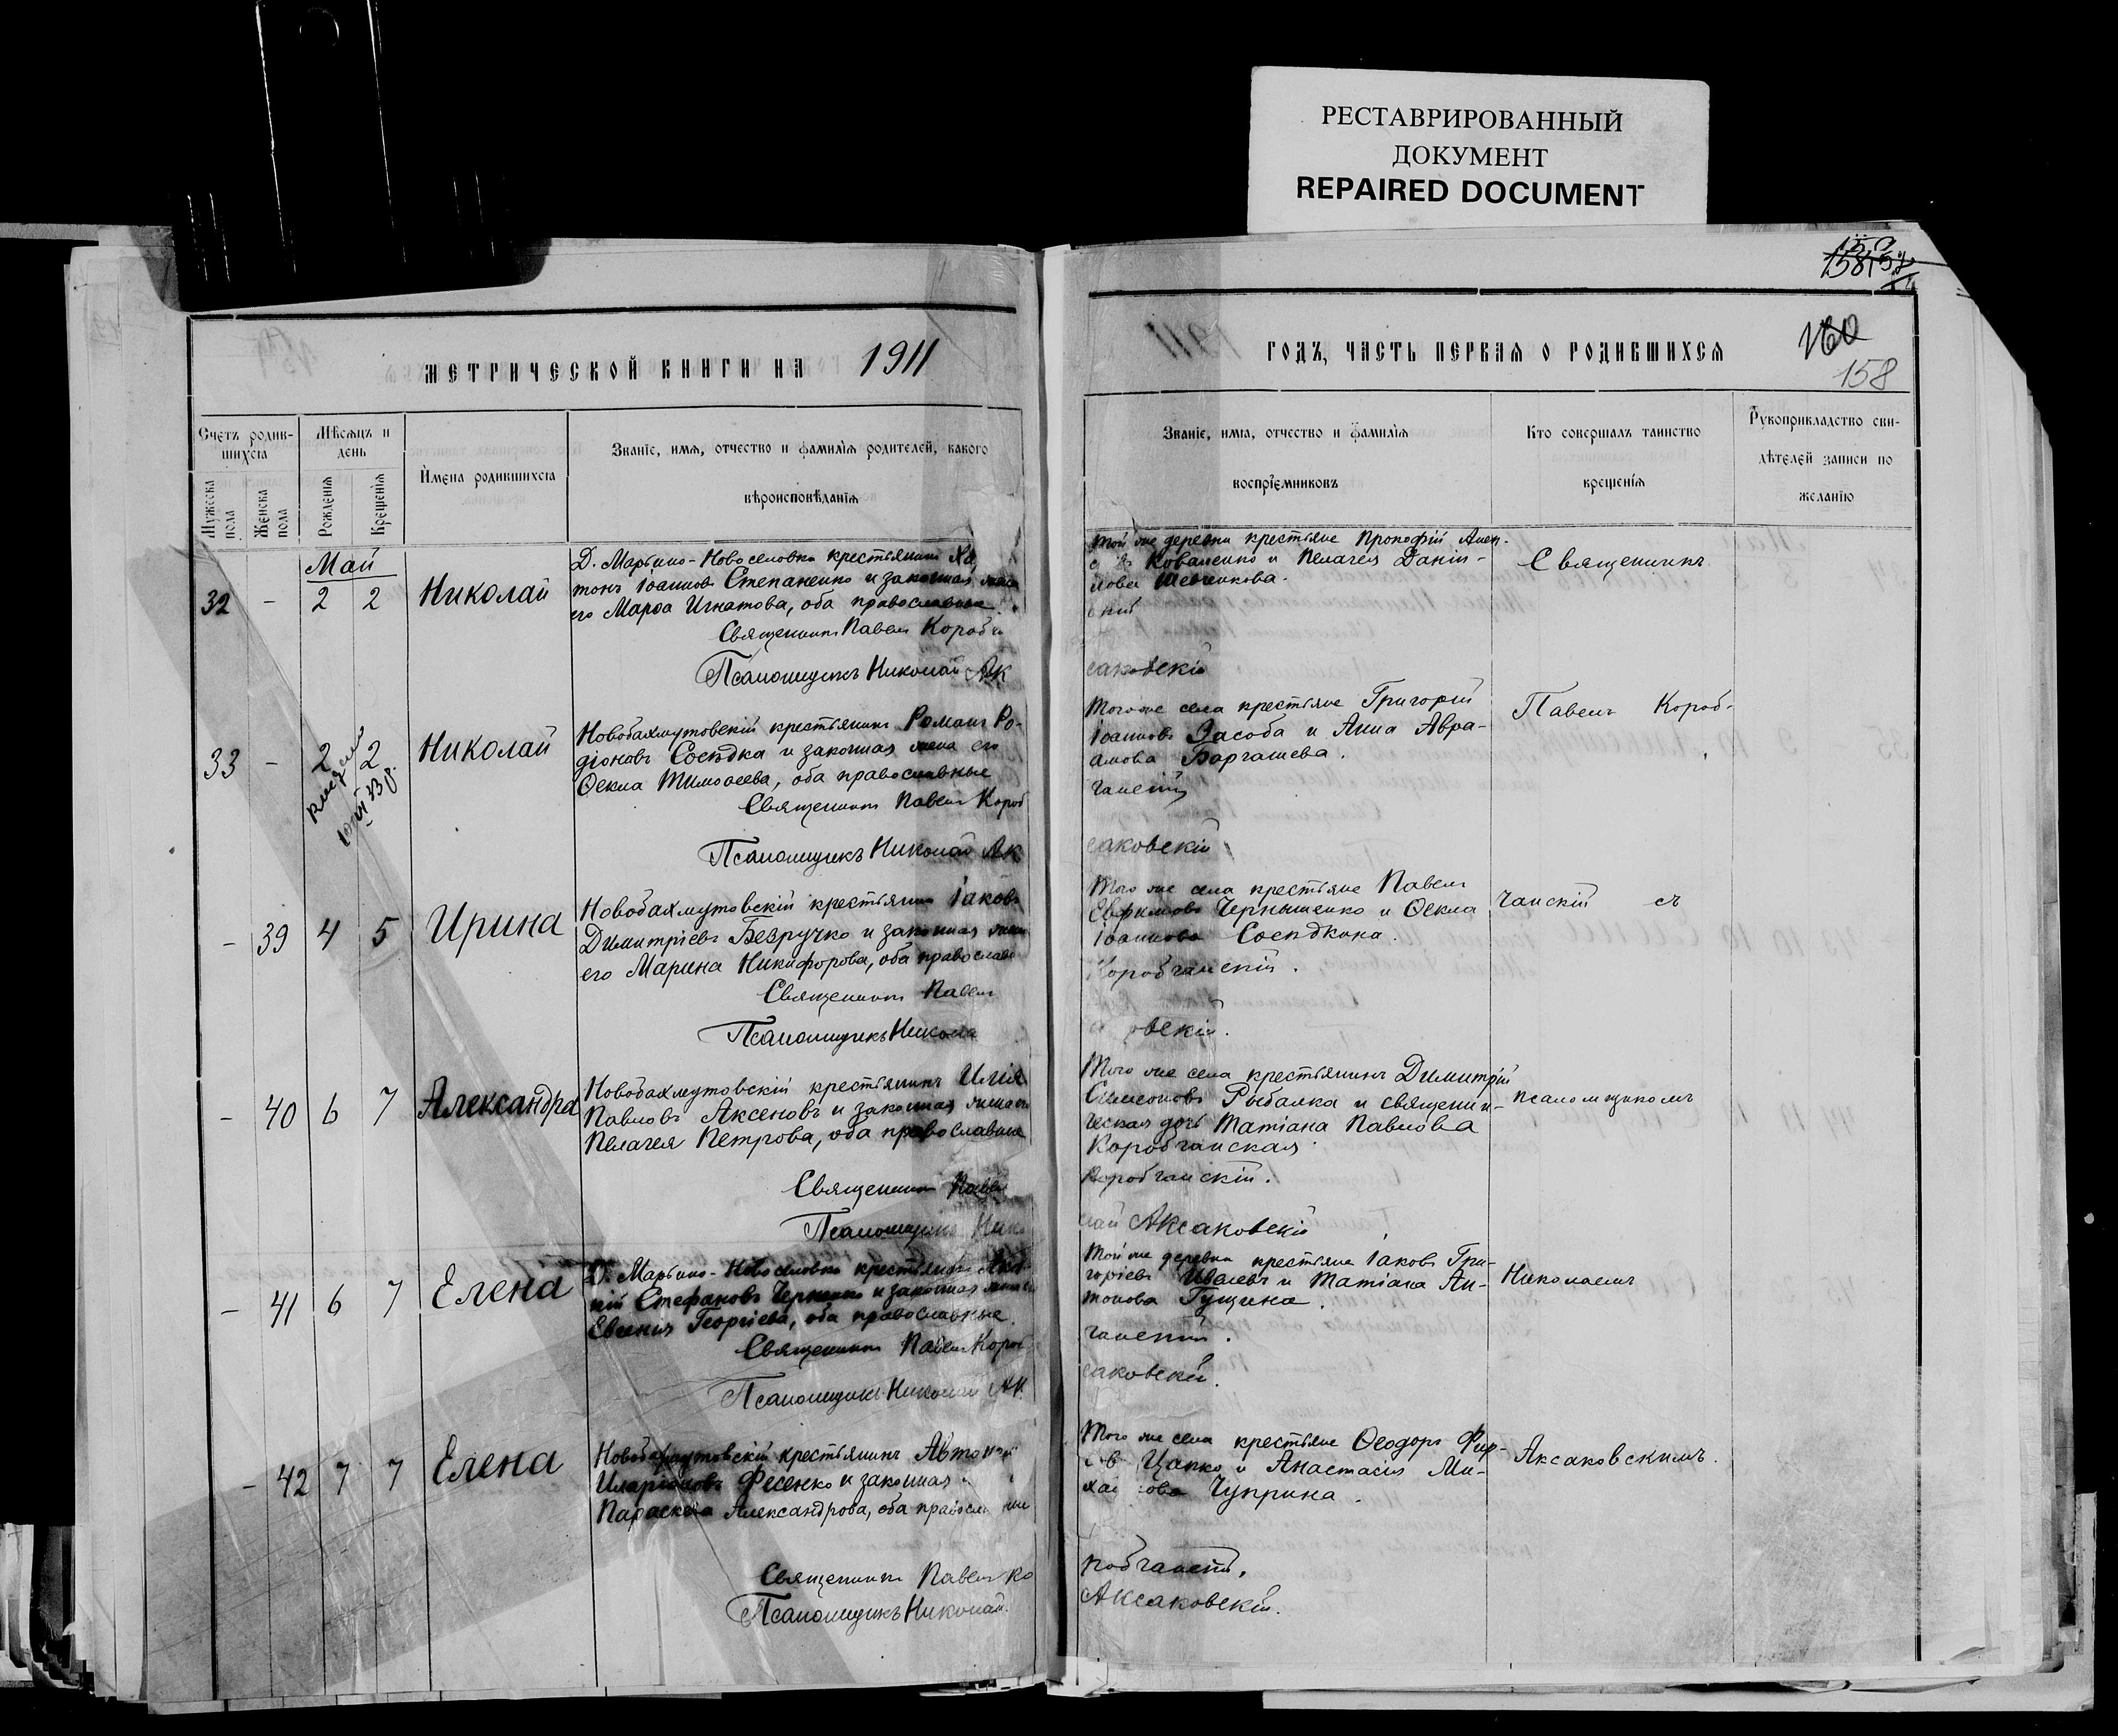 РЕСТАВРИРОВАННЫЙ
ДОКУМЕНТ
REPAIRED DOCUMENT
160
158
МЕТРИЧЕСКОЙ КНИГИ НА 1911
ГОДЪ, ЧАСТЬ ПЕРВАЯ О РОДИВШИХСЯ
Счетъ родив-
шихся
Мужеска
пола
Женска
пола
Мѣсяцъ и
день
Рожденія
Крещенія
Имена родившихся
Званіе, имя, отчество и фамилія родителей, какого
вѣроисповѣданія
Званіе, имя, отчество и фамилія
воспріемниковъ
Кто совершалъ таинство
крещенія
Рукоприкладство сви-
дѣтелей записи по
желанію
Май
32 - 2 2 Николай
Д. Марьино-Новоселовка крестьянинъ
тонъ Іоанновъ Степаненко и законная жена
его Марѳа Игнатова, оба православные.
Священникъ Павелъ Коробч
Псаломщикъ Николай Ак
Той же деревни крестьяне Прокофій
Коваленко и Пелагея Даніи-
лова Шевченкова.
скій
саковскій
Священникъ
33 - 2 2 Николай
Новобахмутовскій крестьянинъ Романъ Ро-
діоновъ Сосѣдка и законная жена его
Ѳекла Тимоѳеева, оба православные
Священникъ Павелъ Короб
Псаломщикъ Николай Ак
Того же села крестьяне Григорій
Іоанновъ Засоба и Анна Авра-
амова Баргашева.
чанскій
саковскій
Павелъ Короб-
- 39 4 5 Ирина
Новобахмутовскій крестьянинъ Іаковъ
Димитріевъ Безручко и законная жена
его Марина Никифорова, оба православ
Священникъ Павелъ
Псаломщикъ Никола
Того же села крестьяне Павелъ
Евфимовъ Чернышенко и Ѳекла
Іоаннова Сосѣдкина.
Коробчанскій.
овскій.
чанскій съ
- 40 6 7 Александра
Новобахмутовскій крестьянинъ Илія
Павловъ Аксеновъ и законная жена его
Пелагея Петрова, оба православные
Священникъ Павелъ
Псаломщикъ Нико
Того же села крестьянинъ Димитрій
Симеоновъ Рыбалка и священни-
ческая дочь Татіана Павлова
Коробчанская.
Коробчанскій.
лай Аксаковскій
псаломщикомъ
- 41 6 7 Елена
Д. Марьино-Новоселовка крестьянинъ
кій Стефановъ Черненко и законная жена
Евгенія Георгіева, оба православные.
Священникъ Павелъ Короб
Псаломщикъ Николай Ак
Той же деревни крестьяне Іаковъ Гри-
горіевъ Ивлевъ и Татіана Ан-
тонова Гущина.
чанскій.
саковскій.
Николаемъ
- 42 7 7 Елена
Новобахмутовскій крестьянинъ
Иларіоновъ Фесенко и законная
Параскева Александрова, оба
Священникъ Павелъ Ко
Псаломщикъ Николай.
Того же села крестьяне Ѳеодоръ
Цапко и Анастасія Ми-
Чуприна.
робчанскій.
Аксаковскій.
Аксаковскимъ.